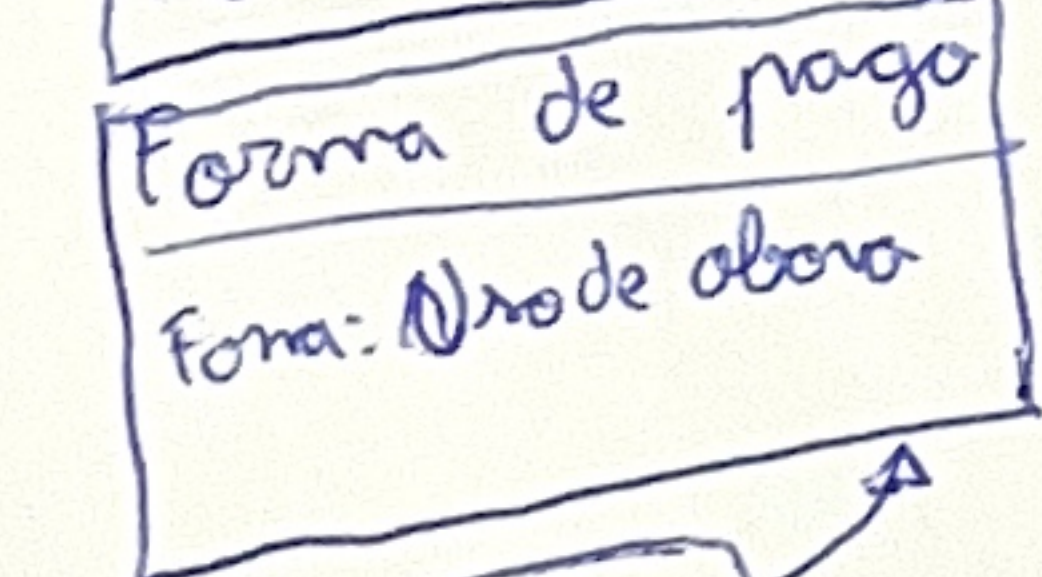 Forma de pago
Forma: Nro de abova